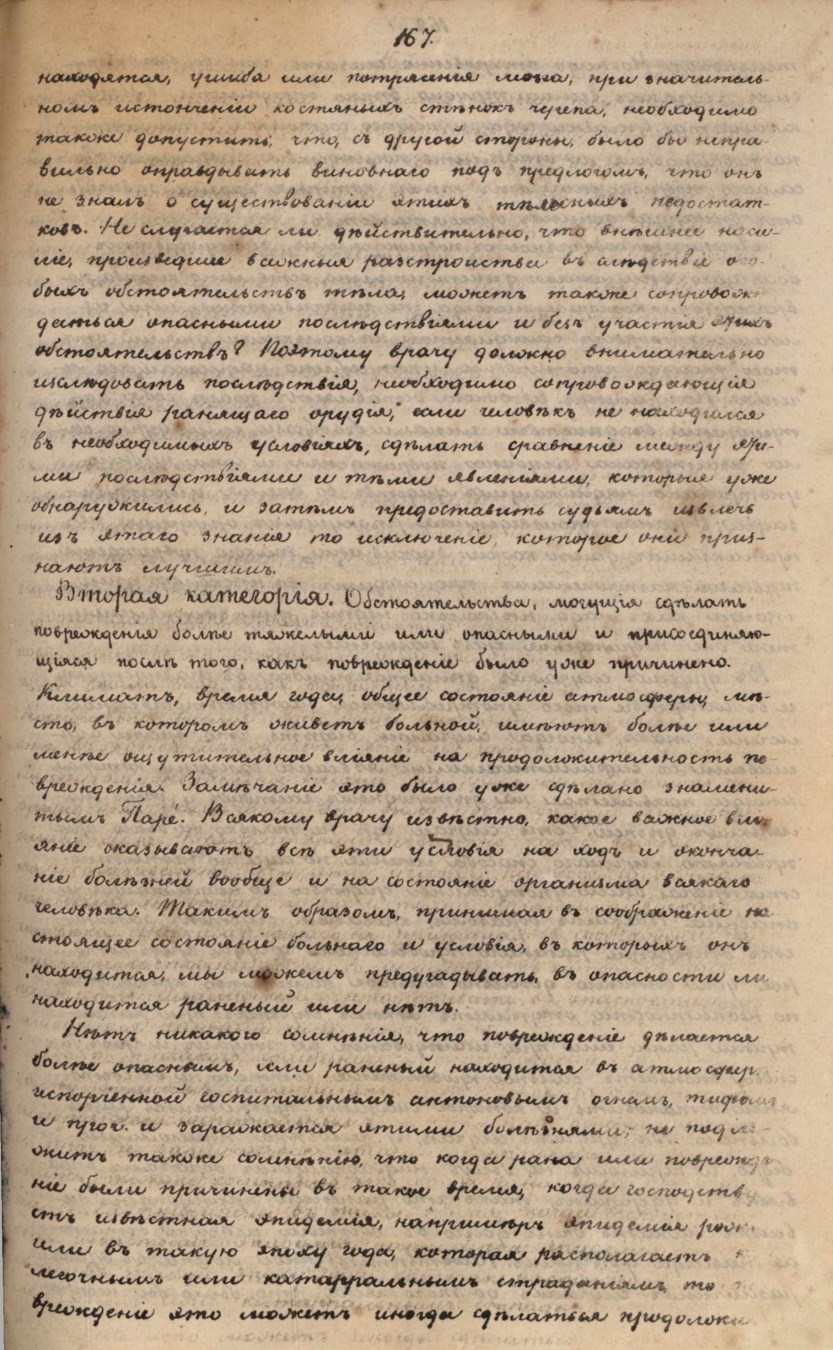 167.
находятся, ушиба или потрясенія мозга, при значитель-
номъ истонченіи костяныхъ стѣнокъ черепа, необходимо
также допустить, что, съ другой стороны, было бы непра-
вильно оправдывать виновнаго подъ предлогомъ, что онъ
не зналъ о существованіи этихъ тѣлесныхъ недостат-
ковъ. Не случается ли дѣйствительно, что внѣшнее наси-
ліе, произведшее важныя разстройства въ слѣдствіе осо-
быхъ обстоятельствъ тѣла, можетъ также сопровож-
даться опасными послѣдствіями и безъ участія этихъ
обстоятельствъ? Поэтому врачу должно внимательно
изслѣдовать послѣдствія, необходимо сопровождающія
дѣйствія ранящаго орудія, если человѣкъ не находился
въ необходимыхъ условіяхъ, сдѣлать сравненіе между эти-
ми послѣдствіями и тѣми явленіями, которыя уже
обнаружились, и затѣмъ предоставить судьямъ извлечь
изъ этаго знанія то исключеніе, которое они приз-
наютъ лучшимъ.
Вторая категорія. Обстоятельства, могущія сдѣлать
поврежденія болѣе тяжелыми или опасными и присоединяю-
щіяся послѣ того, какъ поврежденіе было уже причинено.
Климатъ, время года, общее состояніе атмосферы, мѣ-
сто, въ которомъ живетъ больной, имѣютъ болѣе или
менѣе ощутительное вліяніе на продолжительность по-
врежденія. Замѣчаніе это было уже сдѣлано знамени-
тымъ Паре. Всякому врачу извѣстно, какое важное влі-
яніе оказываютъ всѣ эти условія на ходъ и оконча-
ніе болѣзней вообще и на состояніе организма всякаго
человѣка. Такимъ образомъ, принимая въ соображеніе на-
стоящее состояніе больнаго и условія, въ которыхъ онъ
находится, мы можемъ предугадывать, въ опасности ли
находится раненый или нѣтъ.
Нѣтъ никакого сомнѣнія, что поврежденіе дѣлается
болѣе опаснымъ, если раненый находится въ атмосфер.
испорченной госпитальнымъ антоновымъ огнемъ, тифомъ
и проч. и заражается этими болѣзнями; не подле-
житъ также сомнѣнію, что когда рана или поврежде-
ніе были причинены въ такое время, когда господству-
етъ извѣстная эпидемія, напримѣръ эпидемія рож
или въ такую эпоху года, которая располагаетъ
легочнымъ или катарральнымъ страданіямъ, то
врежденіе это можетъ иногда сдѣлаться продолжи